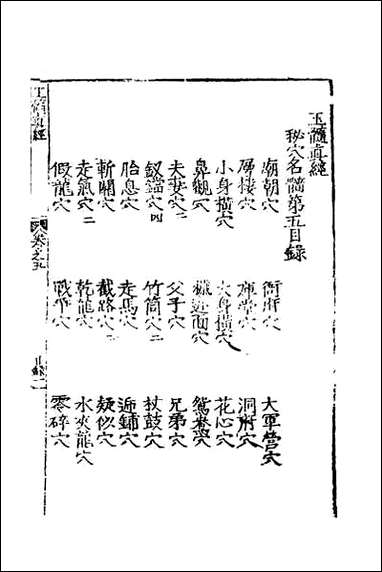 玉髓真經
秘穴名髓第五目錄
廟朝穴 衙府穴 大軍營穴
層樓穴 穴 洞府穴
小身橫穴 大身橫穴 花心穴
鼻顴穴 面穴 鴛鴦穴
夫妻穴二 父子穴 兄弟穴
釵鐺穴四 竹筒穴二 杖鼓穴
胎息穴 走馬穴 逓鋪穴
斬關穴 截路穴二 疑似穴
走氣穴二 乾龍穴 水夾龍穴
假龍穴 穴 零碎穴
玉髓真經 卷之五